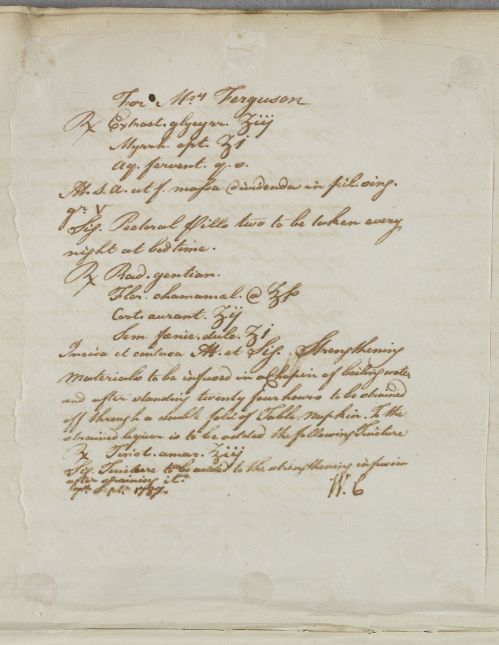 For Mrs Ferguson
℞ Extract. glycyrr. ʒiij
Myrrh. opt. ʒi
Aq. fervent. q. s.
M. S. A. ut f. massa dividenda in pil. sing.
gr. V
Sig. Pectoral Pills two to be taken every
night at bedtime.
℞ Rad. gentian.
Flor. chamæmel. @ ʒſs
Cort. aurant. ʒij
Sem. fœnic. dulc. ʒi
Incisa et contusa M. et Sig. Strengthening
materials to be infused in a Chopin of boiling water
and after standing twenty four hours to be strained
off through a double fold of Table napkin. To the
strained liquor is to be added the following Tincture
℞ Tinct. amar. ʒiij
Sig. Tincture to be added to the strengthening infusion
after straining it.
Sept. 1787. W. C